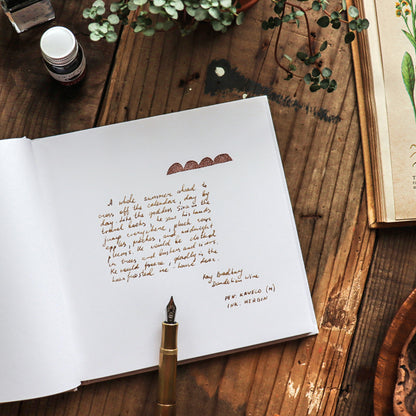 A whole summer ahead to
cross off the calendar, day by
day. Like the goddess Siva in the
travel books, he saw his hands
jump everywhere, pluck sour
apples, peaches, and midnight
plums. He would be clothed
in trees and bushes and rivers.
He would freeze, gladly, in the
hoarfrosted ice-house door.
Ray Bradbury
Dandelion Wine
PEN: KAWECO (M)
INK: HERBIN